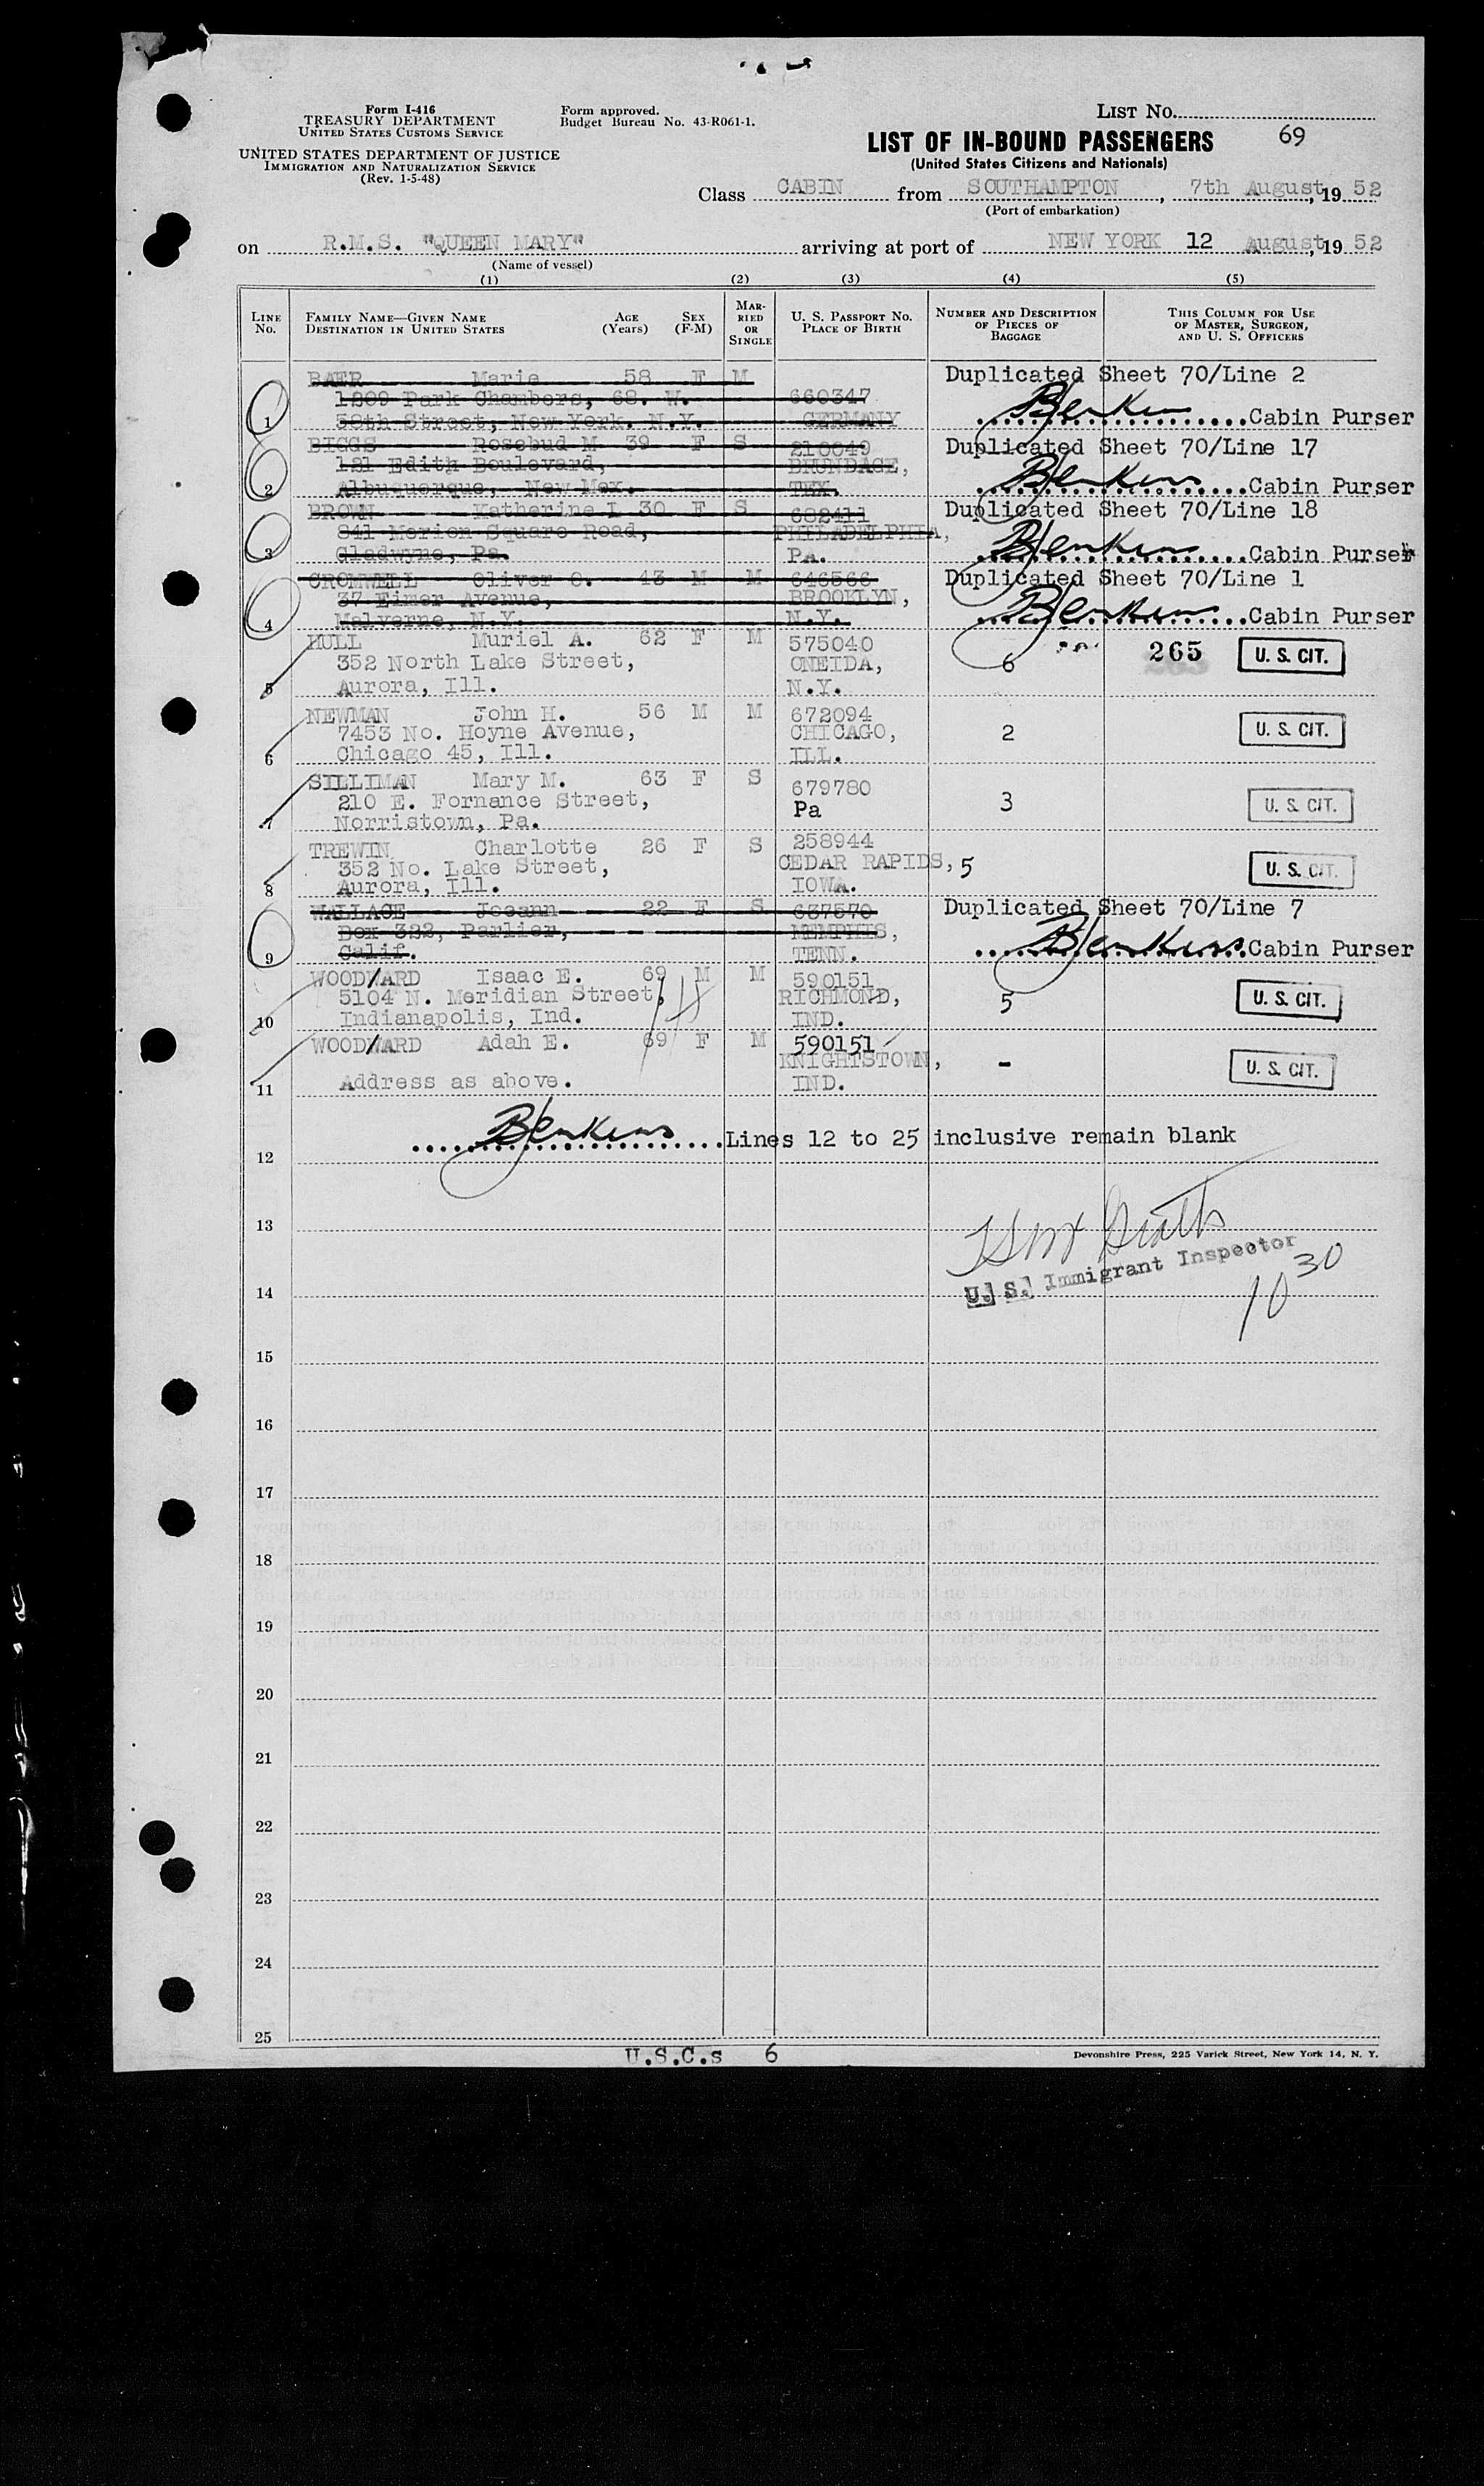 Form I-416
TREASURY DEPARTMENT
UNITED STATES CUSTOMS SERVICE
UNITED STATES DEPARTMENT OF JUSTICE
IMMIGRATION AND NATURALIZATION SERVICE
(Rev. 1-5-48)
Form approved.
Budget Bureau No. 43-R061-1.
LIST No.
69
LIST OF IN-BOUND PASSENGERS
(United States Citizens and Nationals)
Class CABIN from SOUTHAMPTON, 7th August, 19 52
(Port of embarkation)
on R.M.S. "QUEEN MARY" arriving at port of NEW YORK 12 August, 19 52
(Name of vessel)
(1) (2) (3) (4) (5)
LINE No. FAMILY NAME—GIVEN NAME DESTINATION IN UNITED STATES AGE (Years) SEX (F-M) MARRIED OR SINGLE U. S. PASSPORT NO. PLACE OF BIRTH NUMBER AND DESCRIPTION OF PIECES OF BAGGAGE THIS COLUMN FOR USE OF MASTER, SURGEON, AND U. S. OFFICERS
BAER Marie 58 F M Duplicated Sheet 70/Line 2
1209 Park Chambers, 68. W. 660347
1 58th Street, New York. N.Y. GERMANY Cabin Purser
BIGGS Rosebud M 39 F S 210049 Duplicated Sheet 70/Line 17
121 Edith Boulevard, BRUNDAGE,
2 Albuquerque, New Mex. TEX. Cabin Purser
BROWN Katherine L 30 F S 682411 Duplicated Sheet 70/Line 18
841 Merion Square Road, PHILADELPHIA,
3 Gladwyne, Pa. PA. Cabin Purser
CROMWELL Oliver C. 43 M M 646566 Duplicated Sheet 70/Line 1
37 Eimer Avenue, BROOKLYN,
4 Malverne, N.Y. N.Y. Cabin Purser
HULL Muriel A. 62 F M 575040 265 U. S. CIT.
352 North Lake Street, ONEIDA, 6
5 Aurora, Ill. N.Y.
NEWMAN John H. 56 M M 672094 U. S. CIT.
7453 No. Hoyne Avenue, CHICAGO, 2
6 Chicago 45, Ill. ILL.
SILLIMAN Mary M. 63 F S 679780
210 E. Fornance Street, Pa 3 U. S. CIT.
7 Norristown, Pa.
TREWIN Charlotte 26 F S 258944
352 No. Lake Street, CEDAR RAPIDS, 5 U. S. CIT.
8 Aurora, Ill. IOWA.
WALLACE Joeann 22 F S 637570 Duplicated Sheet 70/Line 7
Box 322, Parlier, MEMPHIS,
9 Calif. TENN. Cabin Purser
WOODWARD Isaac E. 69 M M 590151
5104 N. Meridian Street, RICHMOND, 5 U. S. CIT.
10 Indianapolis, Ind. IND.
WOODWARD Adah E. 69 F M 590151
KNIGHTSTOWN, - U. S. CIT.
11 Address as above. IND.
Lines 12 to 25 inclusive remain blank
12
13
U. S. Immigrant Inspector
10 30
14
15
16
17
18
19
20
21
22
23
24
25
U.S.C.s 6
Devonshire Press, 225 Varick Street, New York 14, N. Y.